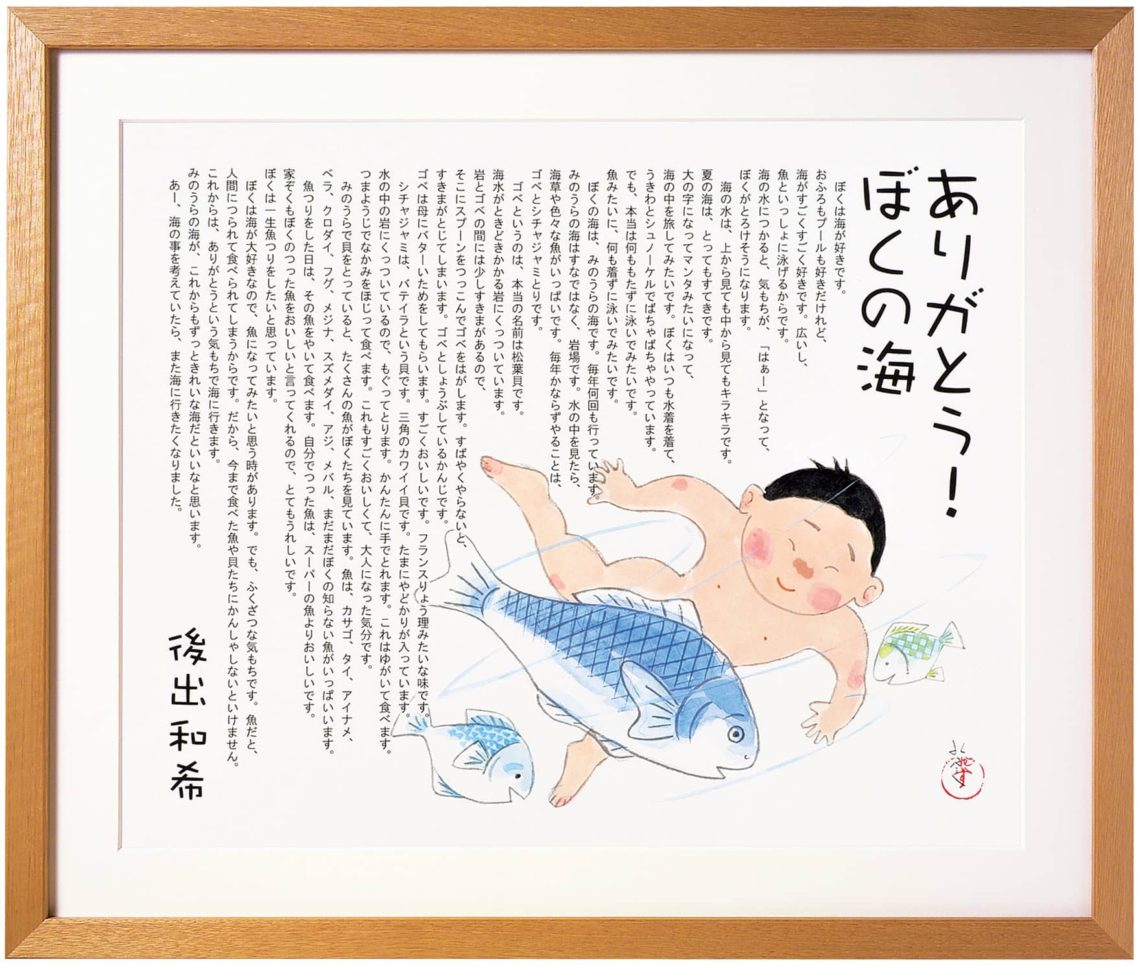 ありがとう！
ぼくの海
ぼくは海が好きです。
おふろもプールも好きだけれど、
海がすごくすごく好きです。広いし、
魚といっしょに泳げるからです。
海の水につかると、気もちが、「はぁー」となって、
ぼくがとろけそうになります。
海の水は、上から見ても中から見てもキラキラです。
夏の海は、とってもすてきです。
大の字になってマンタみたいになって、
海の中を旅してみたいです。ぼくはいつも水着を着て、
うきわとシュノーケルでばちゃばちゃやっています。
でも、本当は何ももたずに泳いでみたいです。
魚みたいに、何も着ずに泳いでみたいです。
ぼくの海は、みのうらの海です。毎年何回も行っています。
みのうらの海はすなではなく、岩場です。水の中を見たら、
海草や色々な魚がいっぱいです。毎年かならずやることは、
ゴベとシチャジャミとりです。
ゴベというのは、本当の名前は松葉貝です。
海水がときどきかかる岩にくっついています。
岩とゴベの間には少しすきまがあるので、
そこにスプーンをつっこんでゴベをはがします。すばやくやらないと、
すきまがとじてしまいます。ゴベとしょうぶしているかんじです。
ゴベは母にバターいためをしてもらいます。すごくおいしいです。フランスりょう理みたいな味です。
シチャジャミは、バテイラという貝です。三角のカワイイ貝です。たまにやどかりが入っています。
水の中の岩にくっついているので、もぐってとります。かんたんに手でとれます。これはゆがいて食べます。
つまようじでなかみをほじって食べます。これもすごくおいしくて、大人になった気分です。
みのうらで貝をとっていると、たくさんの魚がぼくたちを見ています。魚は、カサゴ、タイ、アイナメ、
ベラ、クロダイ、フグ、メジナ、スズメダイ、アジ、メバル、まだまだぼくの知らない魚がいっぱいいます。
魚つりをした日は、その魚をやいて食べます。自分でつった魚は、スーパーの魚よりおいしいです。
家ぞくもぼくのつった魚をおいしいと言ってくれるので、とてもうれしいです。
ぼくは一生魚つりをしたいと思っています。
ぼくは海が大好きなので、魚になってみたいと思う時があります。でも、ふくざつな気もちです。魚だと、
人間につられて食べられてしまうからです。だから、今まで食べた魚や貝たちにかんしゃしないといけません。
これからは、ありがとうという気もちで海に行きます。
みのうらの海が、これからもずっときれいな海だといいなと思います。
あー、海の事を考えていたら、また海に行きたくなりました。
後出和希